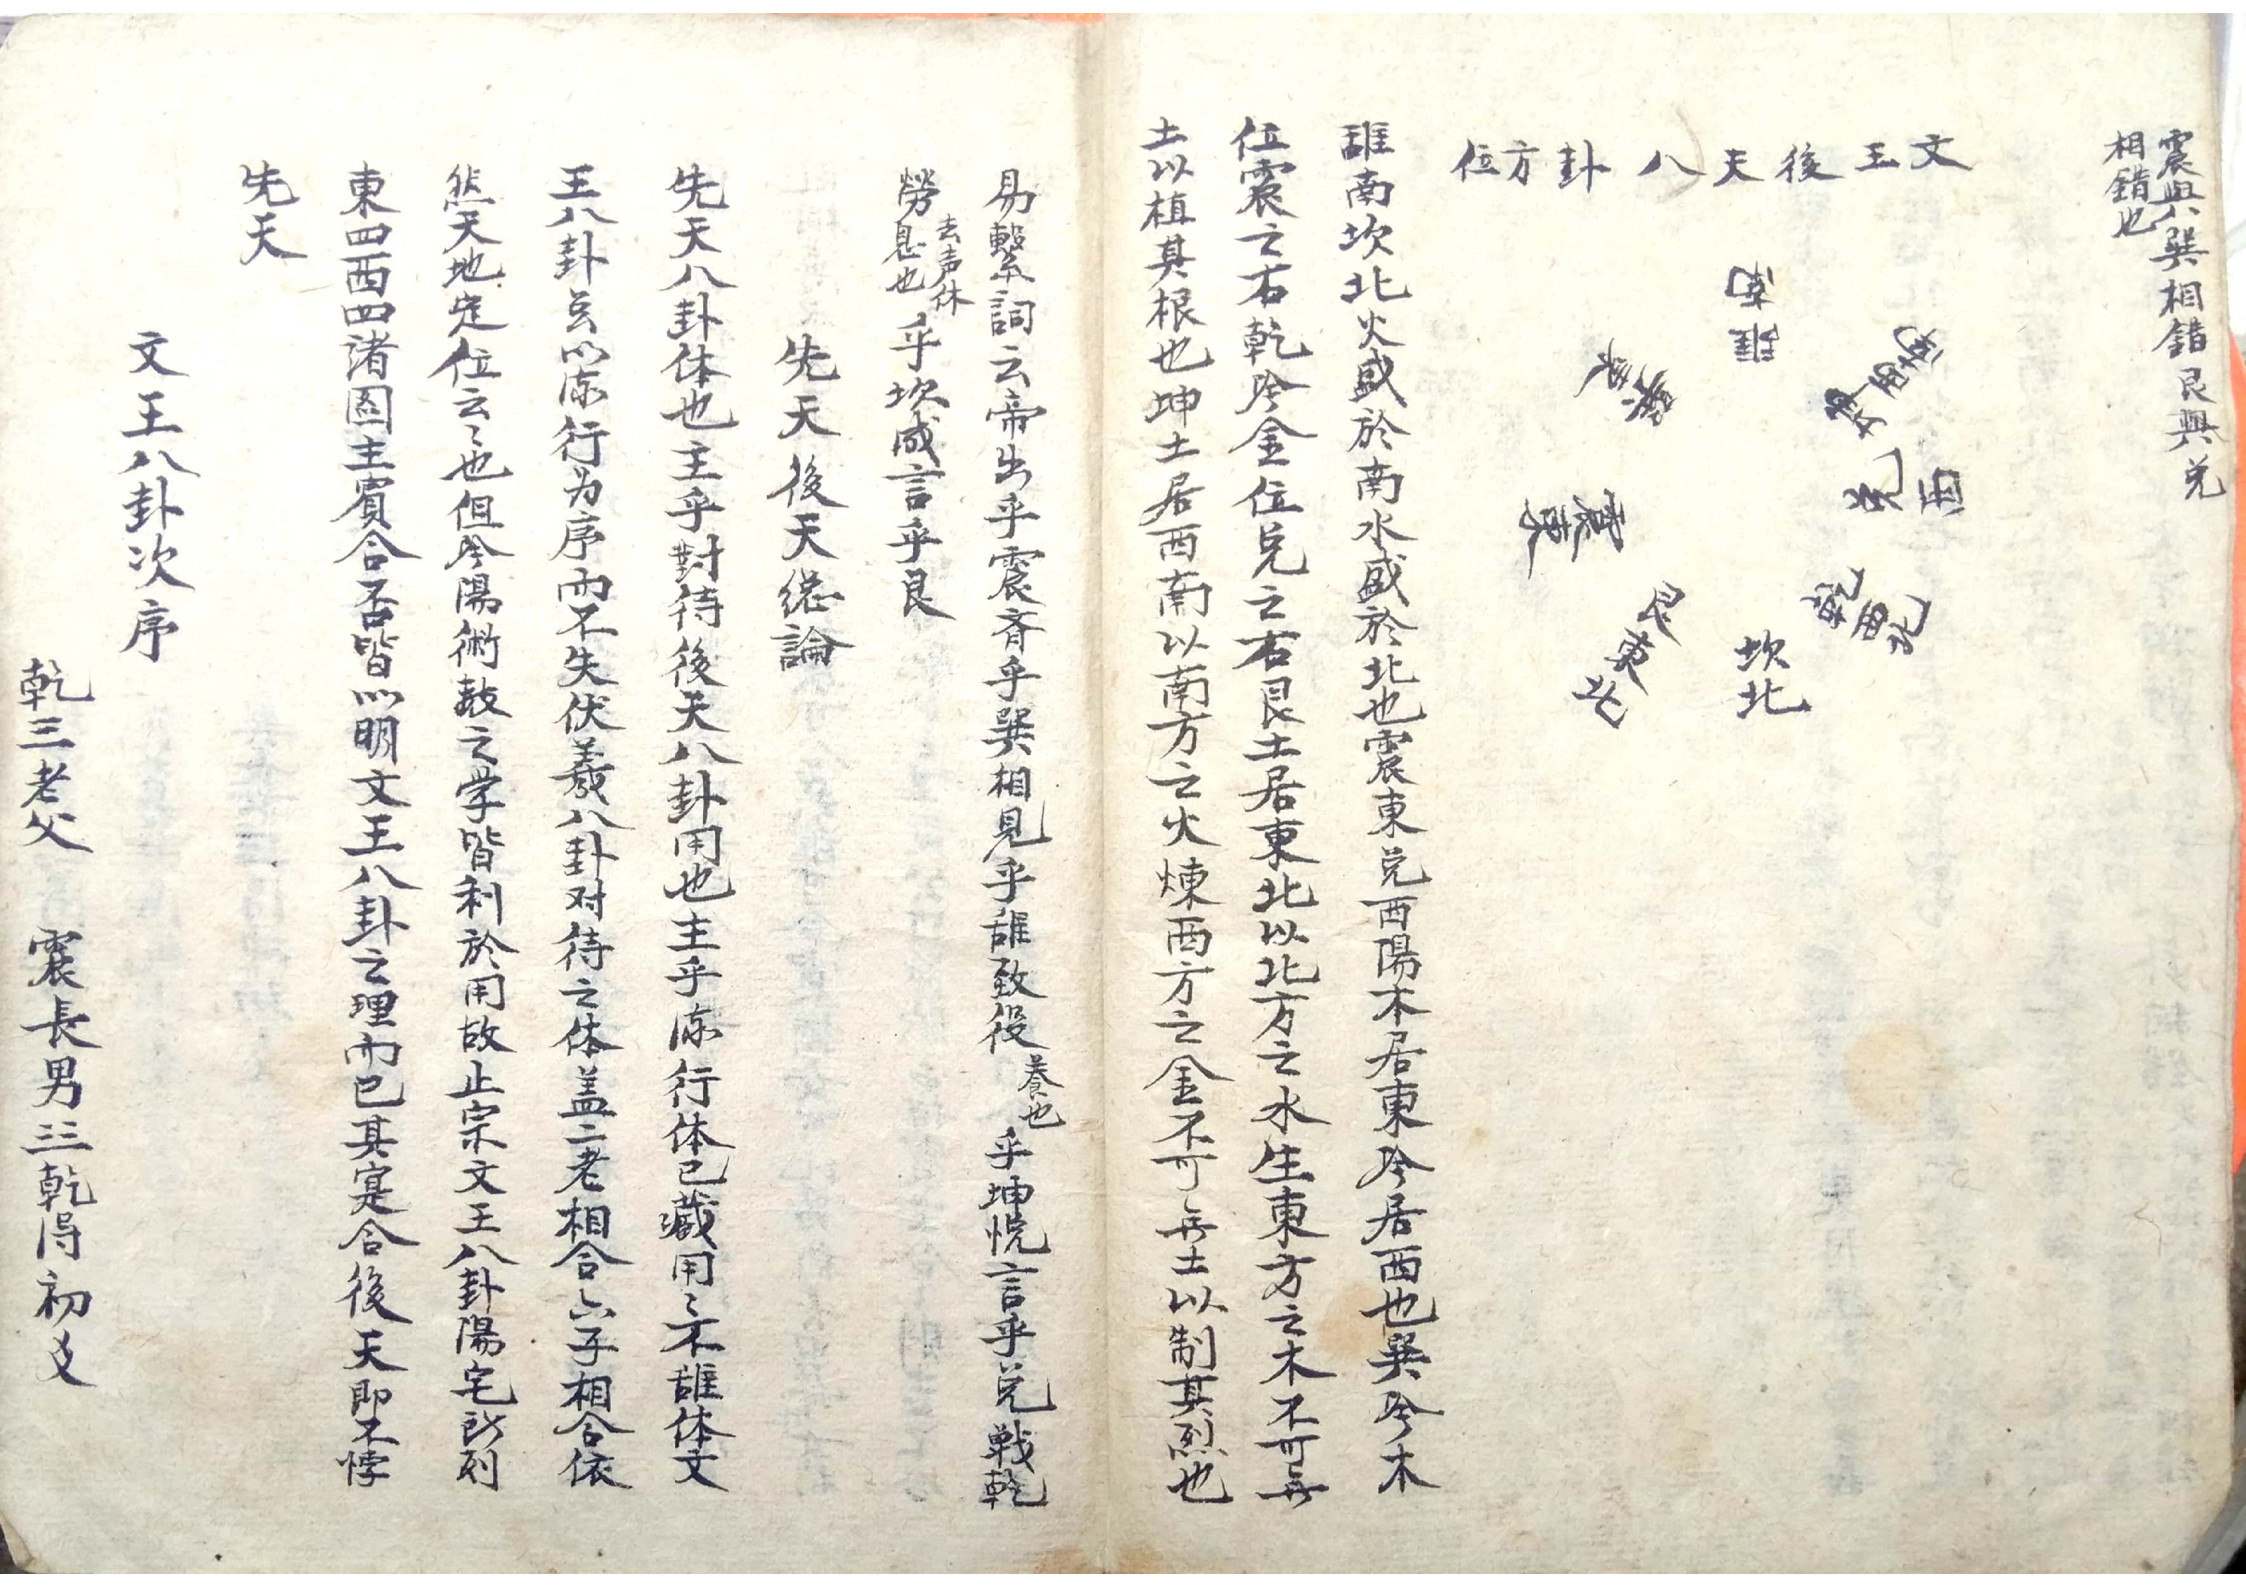 震與巽相錯艮與兌
相錯也
文王後天八卦方位
南離
西南坤
西兌
乾西北
坎北
艮東北
震東
巽東
離南坎北火盛於南水盛於北也震東兌西陽木居東阴居西也巽阴木
位震之右乾阴金位兌之右艮土居東北以北方之水生東方之木不可無
土以植其根也坤土居西南以南方之火煉西方之金不可無土以制其烈也
易繫詞云帝出乎震齊乎巽相見乎離致役養也乎坤悅言乎兌戰乾
勞去声休息也乎坎成言乎艮
先天後天總論
先天八卦体也主乎對待後天八卦用也主乎流行体已藏用〻不離体文
王八卦㒷以流行为序而不失伏羲八卦对待之体盖二老相合六子相合依
然天地定位云〻也但阴陽術数之学皆利於用故止宗文王八卦陽宅所列
東四西四諸圖主賓合否皆以明文王八卦之理而已其寔合後天即不悖
先天
文王八卦次序
乾☰老父 震長男☳乾得初爻